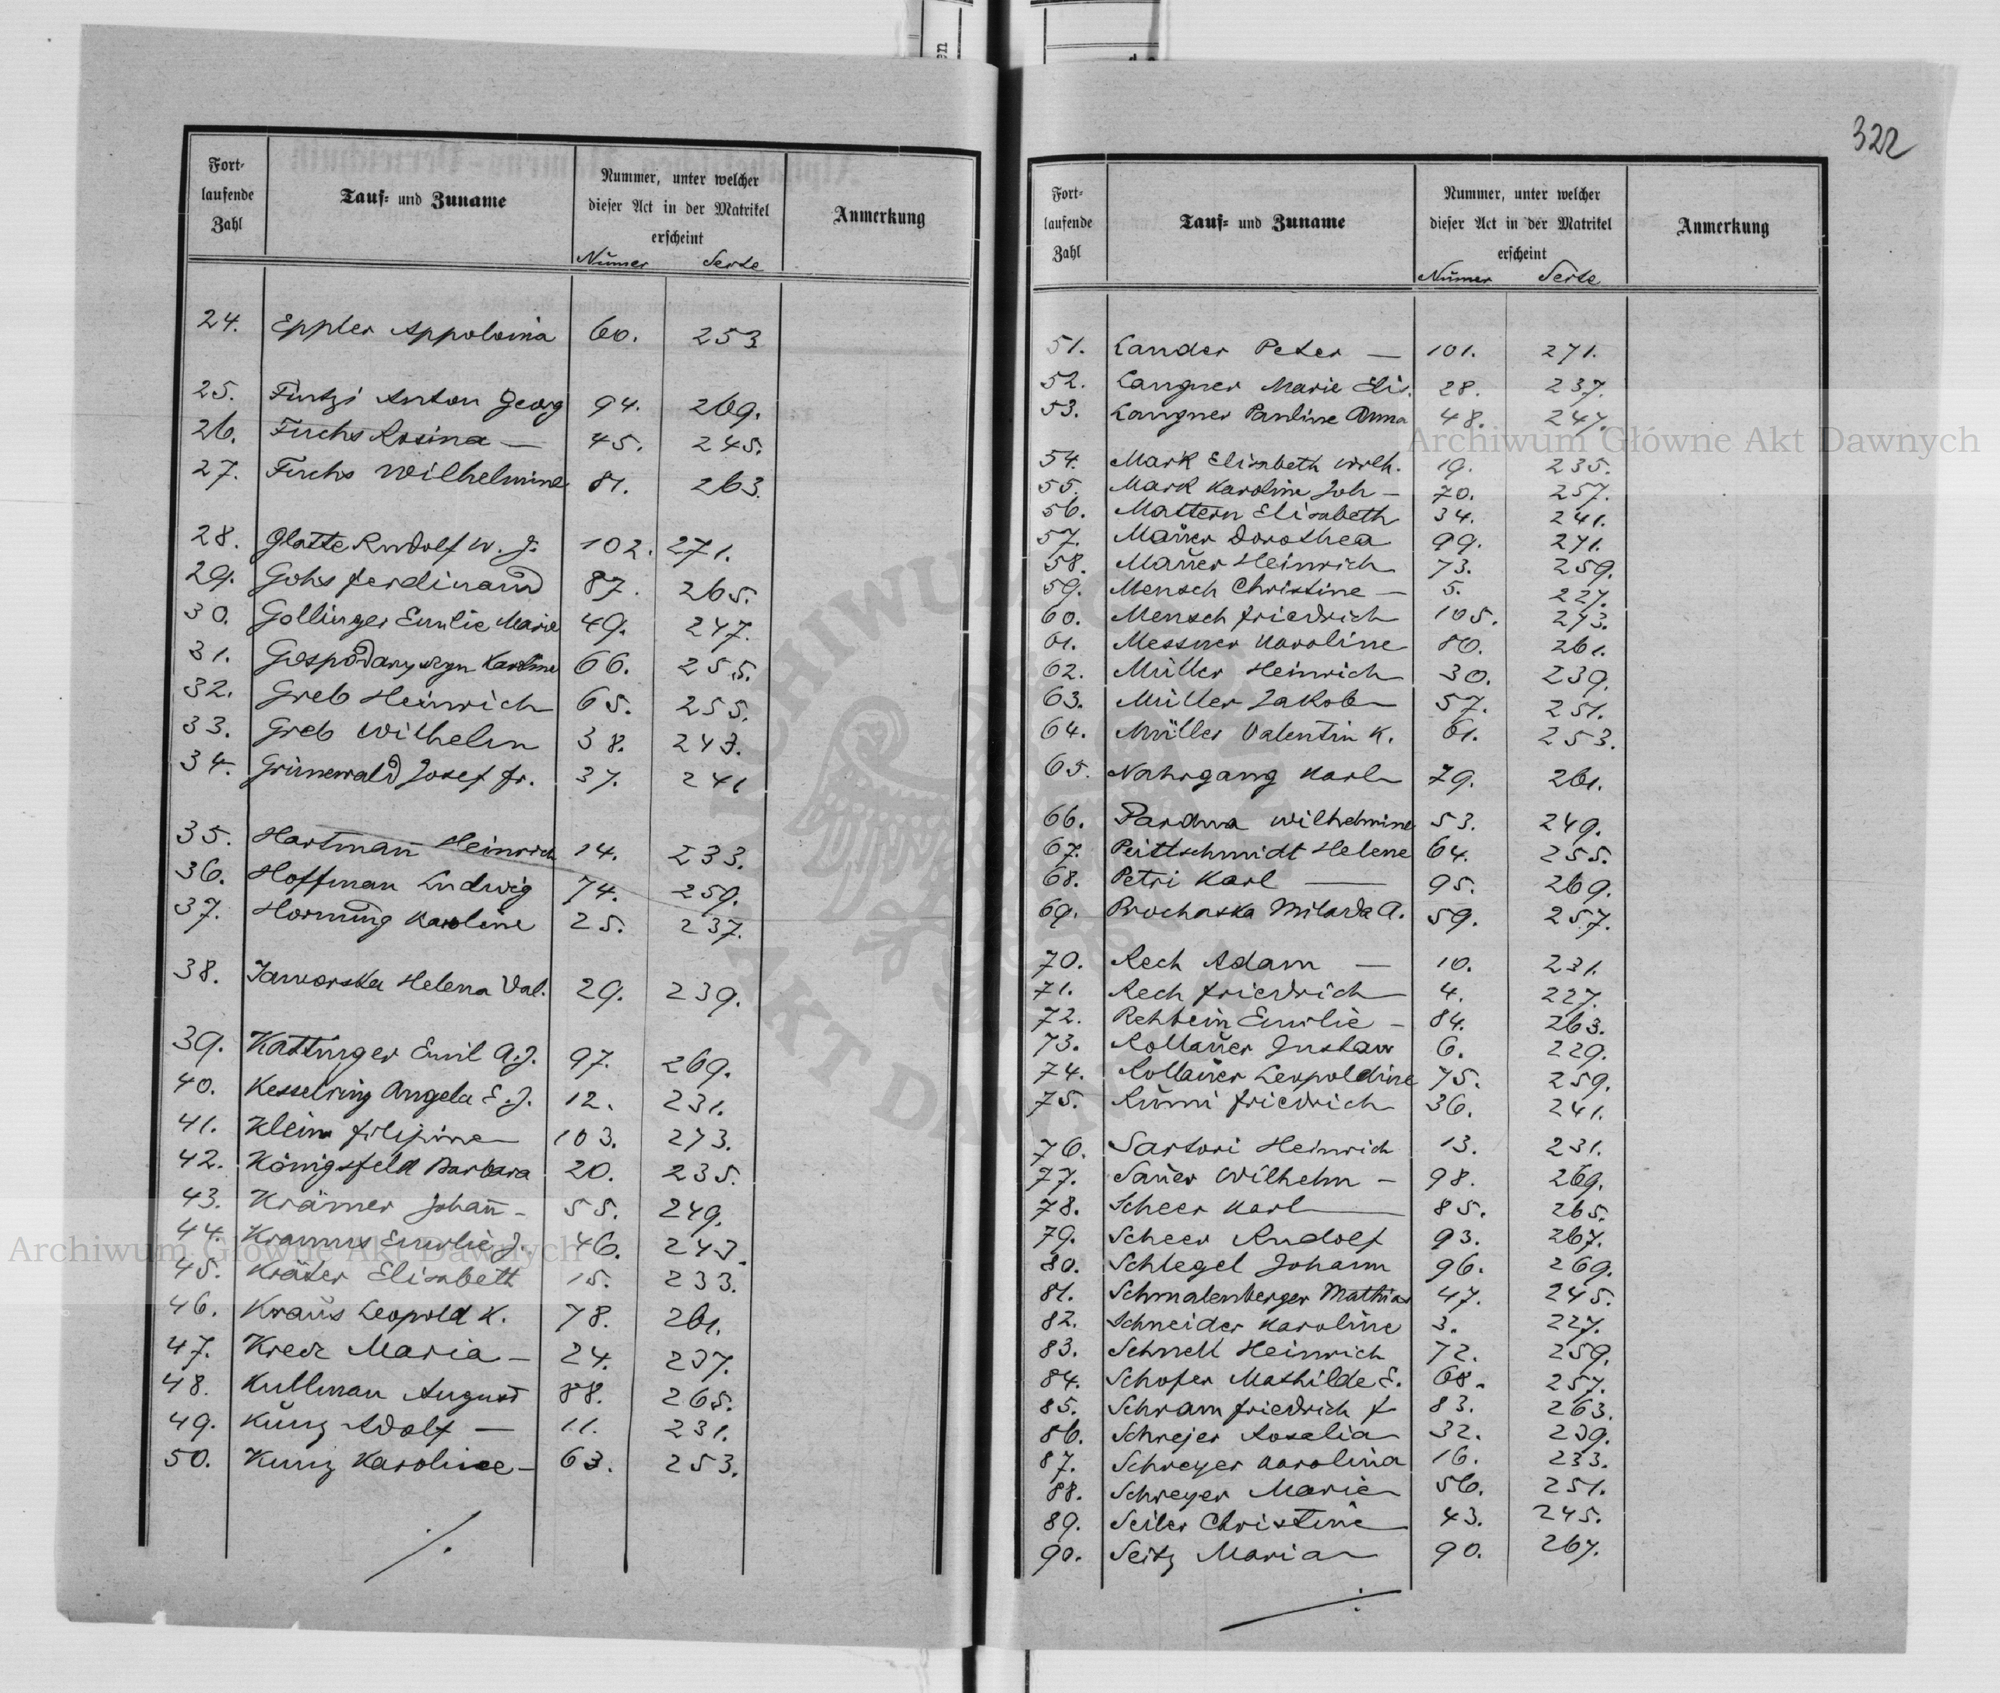 322
Fort-
laufende
Zahl
Tauf- und Zuname
Nummer, unter welcher
dieser Act in der Matrikel
erscheint
Anmerkung
Nūmer Seite
24. Eppler Appolonia 60. 253
25. Fintzi Anton Georg 94. 269.
26. Fuchs Rosina — 45. 245.
27. Fuchs Wilhelmine 81. 263.
28. Glatte Rudolf W. J. 102. 271.
29. Gohs Ferdinand 87. 265.
30. Gollinger Emilie Marie 49. 247.
31. Gospodaryszyn Karoline 66. 255.
32. Greb Heinrich 65. 255.
33. Greb Wilhelm 38. 243.
34. Grünewald Josef Fr. 37. 241
35. Hartman̄ Heinrich 14. 233.
36. Hoffman Ludwig 74. 259.
37. Hornung Karoline 25. 237.
38. Jaworska Helena Val. 29. 239.
39. Kattinger Emil A.J. 97. 269.
40. Kesselring Angela E.J. 12. 231.
41. Klein Filipine 103. 273.
42. Königsfeld Barbara 20. 235.
43. Krämer Johan̄ - 55. 249.
44. Kramus Emilie J. 46. 243.
45. Kräter Elisabett 15. 233.
46. Kraŭs Leopold K. 78. 261.
47. Krecz Maria - 24. 237.
48. Kullman August 88. 265.
49. Kŭnz Adolf — 11. 231.
50. Kunz Karoline - 63. 253.
./.
Fort-
laufende
Zahl
Tauf- und Zuname
Nummer, unter welcher
dieser Act in der Matrikel
erscheint
Anmerkung
Nūmer Seite
51. Lander Peter — 101. 271.
52. Langner Marie Elis. 28. 237.
53. Langner Pauline Anna 48. 247.
54. Mark Elisabeth Wilh. 19. 235.
55. Mark Karoline Joh - 70. 257.
56. Mattern Elisabeth 34. 241.
57. Maŭer Dorothea 99. 271.
58. Maŭer Heinrich 73. 259.
59. Mensch Christine — 5. 227.
60. Mensch Friedrich 105. 273.
61. Messner Karoline 80. 261.
62. Müller Heinrich 30. 239.
63. Müller Jakob 57. 251.
64. Müller Valentin K. 61. 253.
65. Nahrgang Karl 79. 261.
66. Pardwa Wilhelmine 53. 249.
67. Peittschmidt Helene 64. 255.
68. Petri Karl — 95. 269.
69. Prochaska Milada A. 59. 257.
70. Rech Adam — 10. 231.
71. Rech Friedrich 4. 227.
72. Rehbein Emilie - 84. 263.
73. Rollaŭer Gustaw 6. 229.
74. Rollaŭer Leopoldine 75. 259.
75. Rŭmi Friedrich 36. 241.
76. Sartori Heinrich 13. 231.
77. Saŭer Wilhelm - 98. 269.
78. Scheer Karl — 85. 265.
79. Scheer Rudolf 93. 267.
80. Schlegel Johann 96. 269.
81. Schmalenberger Mathias 47. 245.
82. Schneider Karoline 3. 227.
83. Schnell Heinrich 72. 259.
84. Schofer Mathilde E. 68. 257.
85. Schram Friedrich F 83. 263.
86. Schrejer Rosalia 32. 239.
87. Schreyer Karolina 16. 233.
88. Schreyer Marie 56. 251.
89. Seiler Christine 43. 245.
90. Seitz Maria 90. 267.
./.
Archiwum Główne Akt Dawnych
Archiwum Główne Akt Dawnych